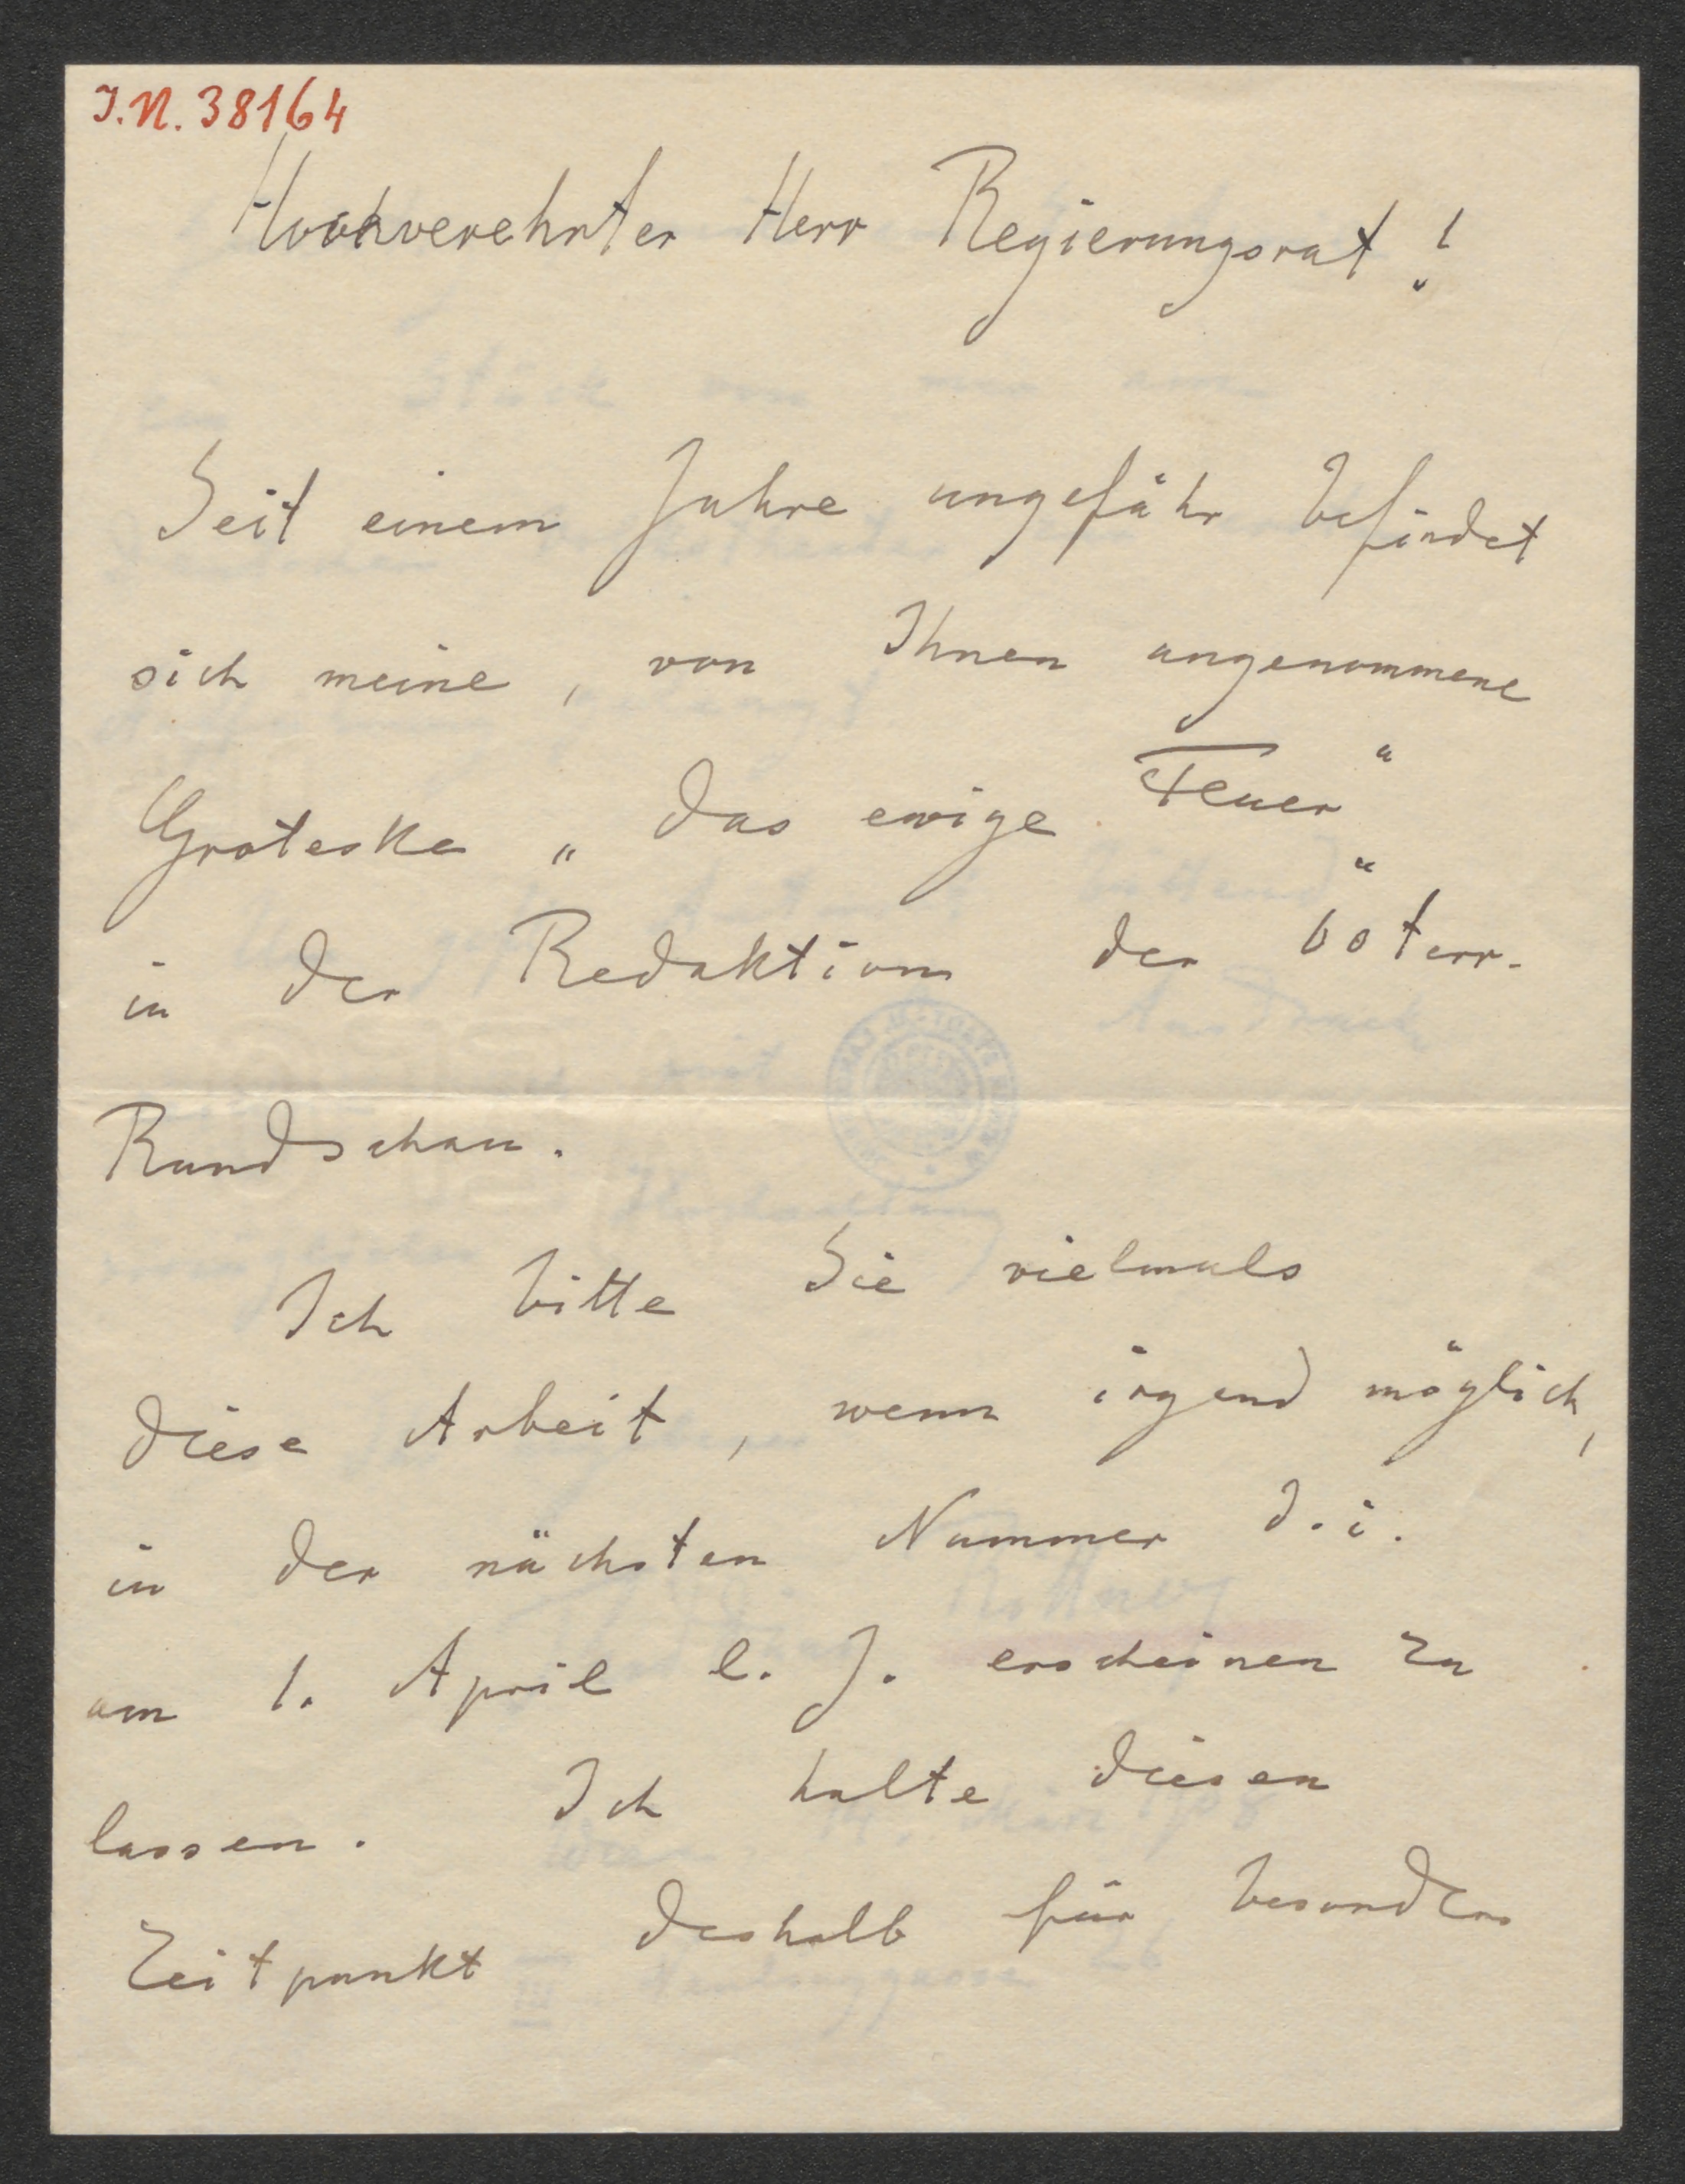 I.N. 38164
Hochverehrter Herr Regierungsrat!
Seit einem Jahre ungefähr befindet
sich meine, von Ihnen angenommene
Groteske „Das ewige Feuer“
in der Redaktion der österr.
Rundschau.
Ich bitte Sie vielmals
diese Arbeit, wenn irgend möglich,
in der nächsten Nummer d. i.
am 1. April l. J. erscheinen zu
lassen. Ich halte diesen
Zeitpunkt deshalb für besonders